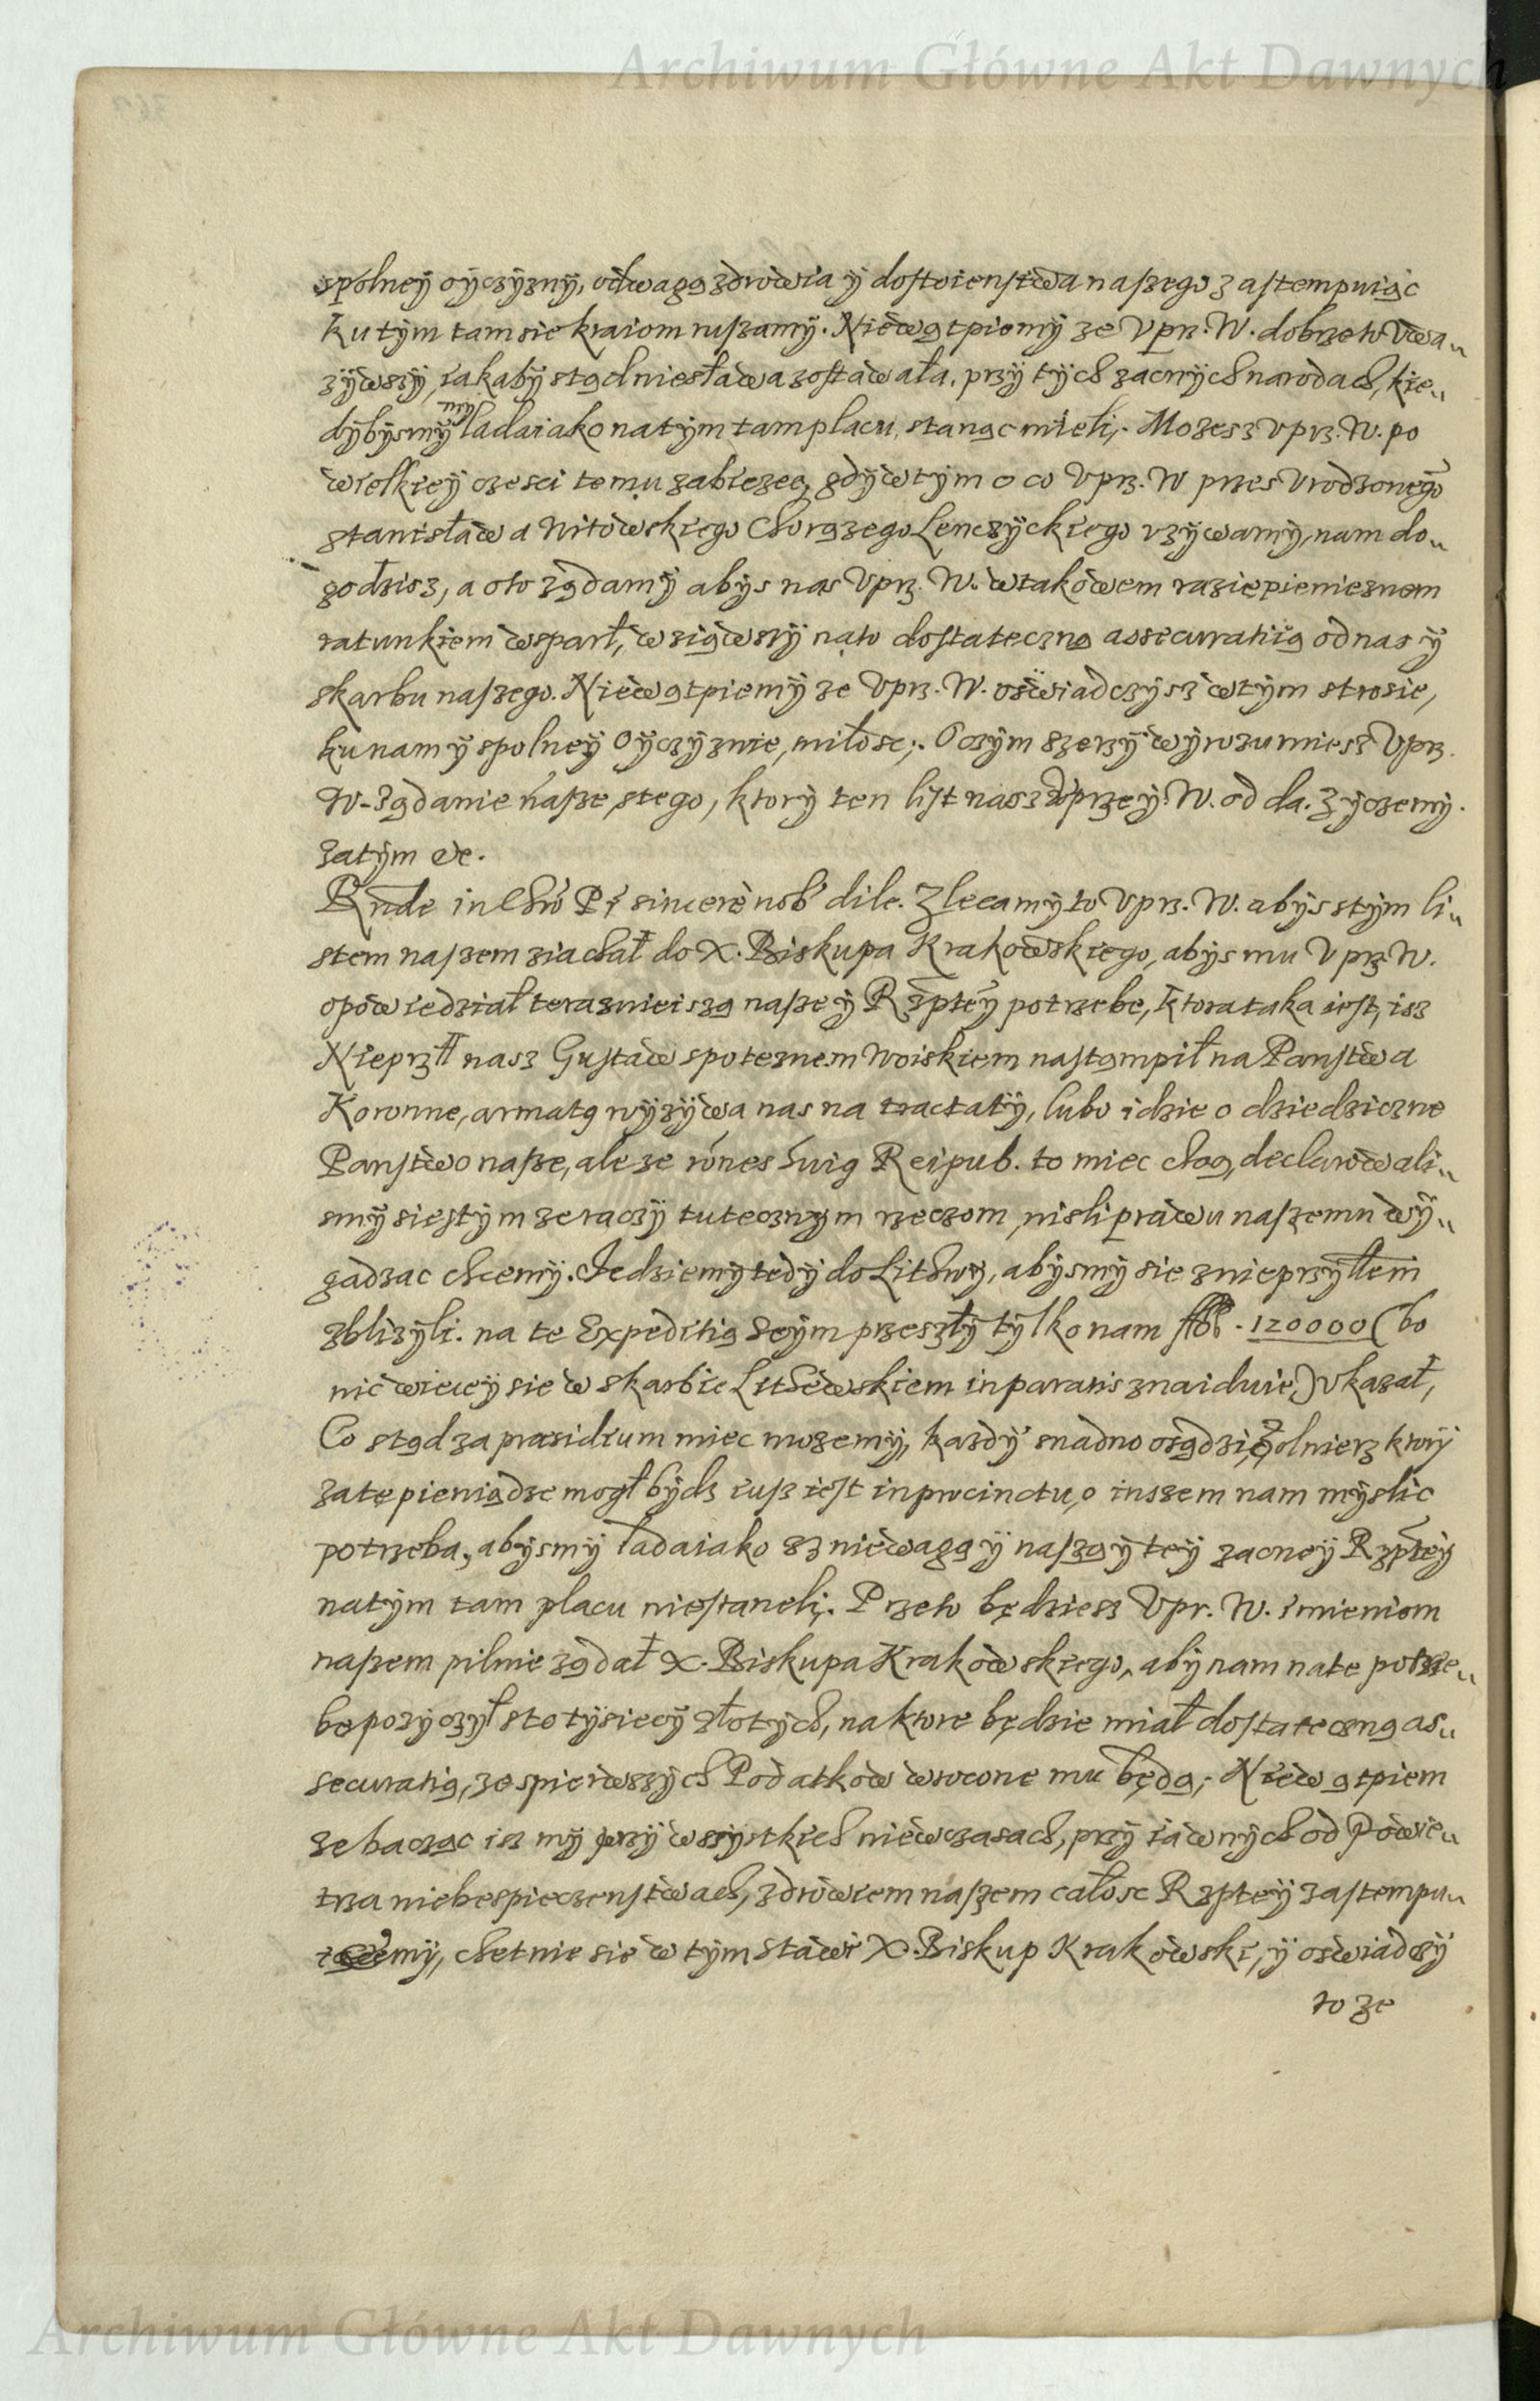 Archiwum Główne Akt Dawnych
spolneÿ oÿczÿznÿ, odwagą zdrowia ÿ dostoienstwa naszego zastempuiąc
ku tÿm tam sie kraiom ruszamÿ. Niewątpiemÿ ze Vprz. W. dobrze to vwa„
zÿwszÿ, iakabÿ stąd niesława zostawała, przÿ tÿch zacnÿch narodach, kie„
dÿbÿsmÿ mÿ ladaiako na tÿm tam placu, stanąc mieli. Mozesz Vprz. W. po
wielkieÿ czesci temu zabiezec, gdÿ w tÿm o co Vprz. W przes Vrodzonego
Stanisława Nitowskiego Chorązego Lenczÿckiego vzÿwamÿ, nam do„
godzisz, a oto ządamÿ abÿs nas Vprz. W. w takowem razie pienieznem
ratunkiem wsparł, wziąwszÿ na to dostateczną assecuratią od nas ÿ
skarbu naszego. Niewątpiemÿ ze Vprz. W. oswiadczÿsz w tÿm strosie,
ku nam ÿ spolneÿ Oÿczÿznie, miłosc. O czÿm szerzÿ wÿrozumiesz Vprz.
W. Ządanie nasze, stego, ktorÿ ten list nasz Vprzeÿ. W. od da. Zÿczemÿ.
zatÿm etc.
Rnde in Chro Pr sincere nob dile. Zlecamÿ to Vprz. W. abÿs stÿm li„
stem naszem ziachał do X. Biskupa Krakowskiego, abÿs mu Vprz W.
opowiedział terazniejszą naszeÿ Rzpteÿ potrzebe, ktora taka iest, isz
Nieprzÿł nasz Gustaw spoteznem Woiskiem nastąmpił na Panstwa
Koronne, armatą wÿzÿwa nas na tractatÿ, lubo idzie o dziedziczne
Panstwo nasze, ale ze rones suią Reipub. to miec chcą, declarowali„
smÿ sie stÿm ze raczÿ tutecznÿm rzeczom, nisli prawu naszemu wÿ„
gadzac chcemÿ. Jedziemÿ tedÿ do Lithwÿ, abÿsmÿ sie znieprzÿłem
zblizÿli. na te Expeditią Seÿm przeszłÿ tÿlko nam 120000 (bo
nic wieceÿ sie w skarbie Lithewskiem in paratis znaiduie) vkazał,
Co stąd za præsidium miec mozemÿ, kazdÿ snadno osądzi, Zołnierz ktorÿ
za te pieniądze mogł bÿdz iusz iest in procinctu, o inszem nam mÿslic
potrzeba, abÿsmÿ ladaiako sz niewagą ÿ naszą ÿ teÿ zacneÿ Rzpteÿ
na tÿm tam placu niestaneli. Przeto będziesz Vpr. W. imieniem
naszem pilnie ządał X. Biskupa Krakowskiego, abÿ nam na te potrze„
be pozÿczÿł sto tÿsiecÿ złotÿch, na ktore będzie miał dostateczną as„
securatią, ze spierwszÿch Podatkow wrocone mu będą. Niewątpiem
ze bacząc isz mÿ przÿ wszÿstkich niewczasach, przÿ iawnÿch od Powie„
trza niebespieczenstwach, zdrowiem naszem całosc Rzpteÿ zastempu„
iemÿ, chetnie sie w tÿm stawi X. Biskup Krakowski, ÿ oswiadczÿ
to ze
Archiwum Główne Akt Dawnych